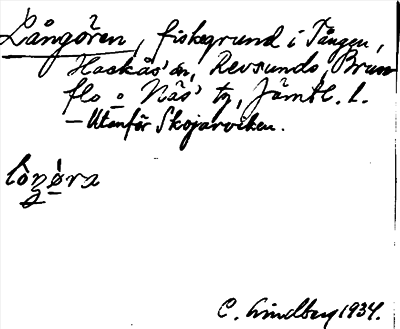 Långören, fiskegrund i Tången,
Hackås' sn, Revsunds, Brun
flo o Näs' tg, Jämtl. l.
— Utanför Skojarviken.
C. Lindberg 1934.